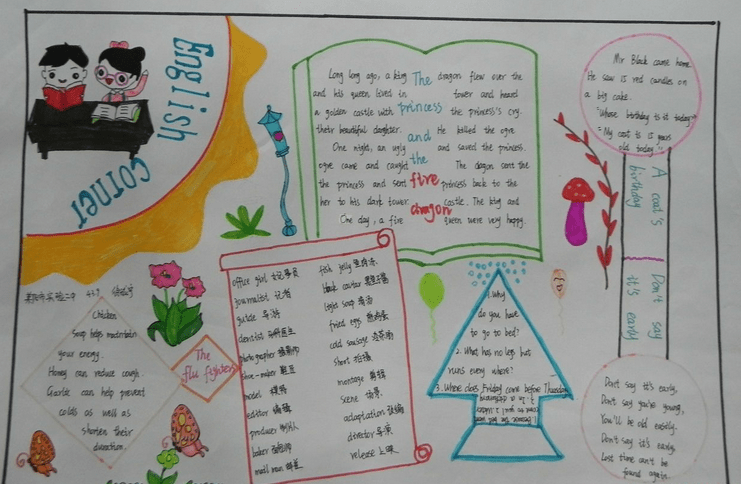 English
corner
Long long ago, a king
and his queen lived in
a golden castle with
their beautiful daughter.
One night, an ugly
ogre came and caught
the princess and sent
her to his dark tower.
One day, a fire
The
princess
and
the
fire
dragon
dragon flew over the
tower and heard
the princess's cry.
He killed the ogre
and saved the princess.
The dragon sent the
princess back to the
castle. The king and
queen were very happy.
Mr Black came home.
He saw 15 red candles on
a big cake.
"Whose birthday is it today?"
"My coat is 15 years
old today."
A coat's
birthday
Don't say
it's early
Don't say it's early,
Don't say you're young,
You'll be old easily.
Don't say it's early,
Lost time can't be
found again.
Chicken
Soup helps
your energy.
Honey can reduce cough.
Garlic can help prevent
colds as well as
shorten their
duration.
The
flu fighters
office girl 女记事员
journalist 记者
guide 导游
dentist 牙科医生
photographer 摄影师
shoe-maker 鞋匠
model 模特
editor 编辑
producer 制片人
baker 面包师
mail man 邮差
fish jelly 鱼肉冻
black caviar
light soup 清汤
fried eggs 煎鸡蛋
cold sausage 冷茶肠
short 短福
montage 剪辑
scene 场景
adaptation 改编
director 导演
release 上映
1. Why
do you have
to go to bed?
2. What has no legs but
runs every where?
3. Where does Friday come before Thursday
1. Because the bed won't
come to you! 2. Water
3. In a dictionary